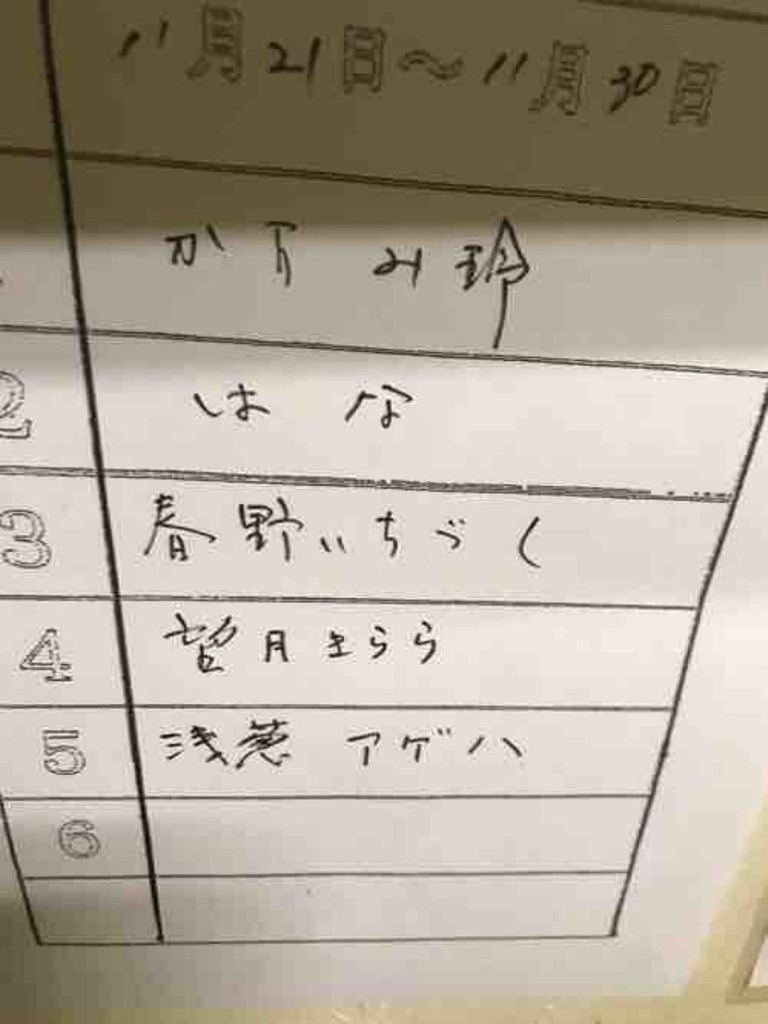 11月21日~11月30日
2 はな
3 春野いちづく
4 望月きらら
5 浅葱 アゲハ
6